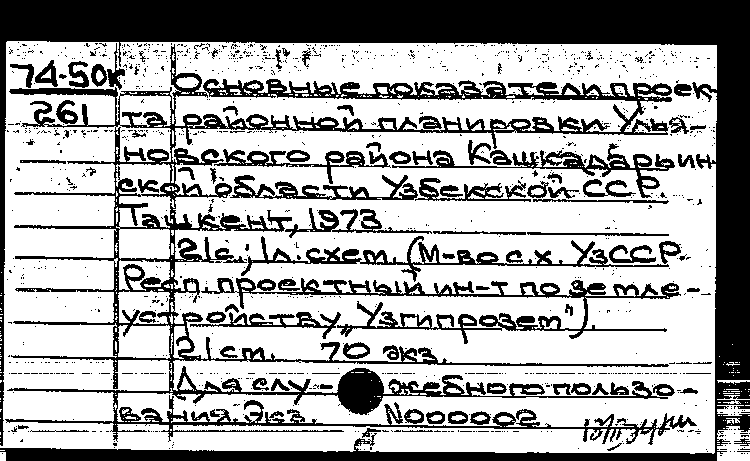 74-50к Основные показатели проек-
261 та районной планировки Улья-
новского района Кашкадарьин-
ской области Узбекской ССР.
Ташкент, 1973.
21с.; 1л.схем. (М-во с.х. УзССР.
Респ. проектный ин-т по земле-
устройству „Узгипрозем").
21 см. 70 экз.
Для слу- жебного пользо-
вания. Экз. N000002.